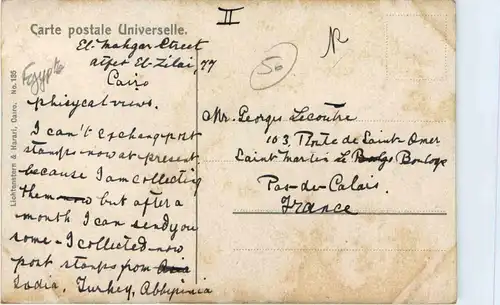 II
Carte postale Universelle.
El-Mahgar Street
atfet El-Zilai, 77
Cairo
50
R
Egypte
phisycal views.
I can't exchang post
stamps now at present
because I am collecting
them now but after a
month I can send you
some - I collected now
post stamps from Asia
India, Turkey, Abbysinia
Mr. Georges Lecoutre
103, Route de Saint-Omer
Saint Martin Le Bolgs Bouloge
Pas-de-Calais.
France
Lichtenstern & Harari, Cairo. No. 185